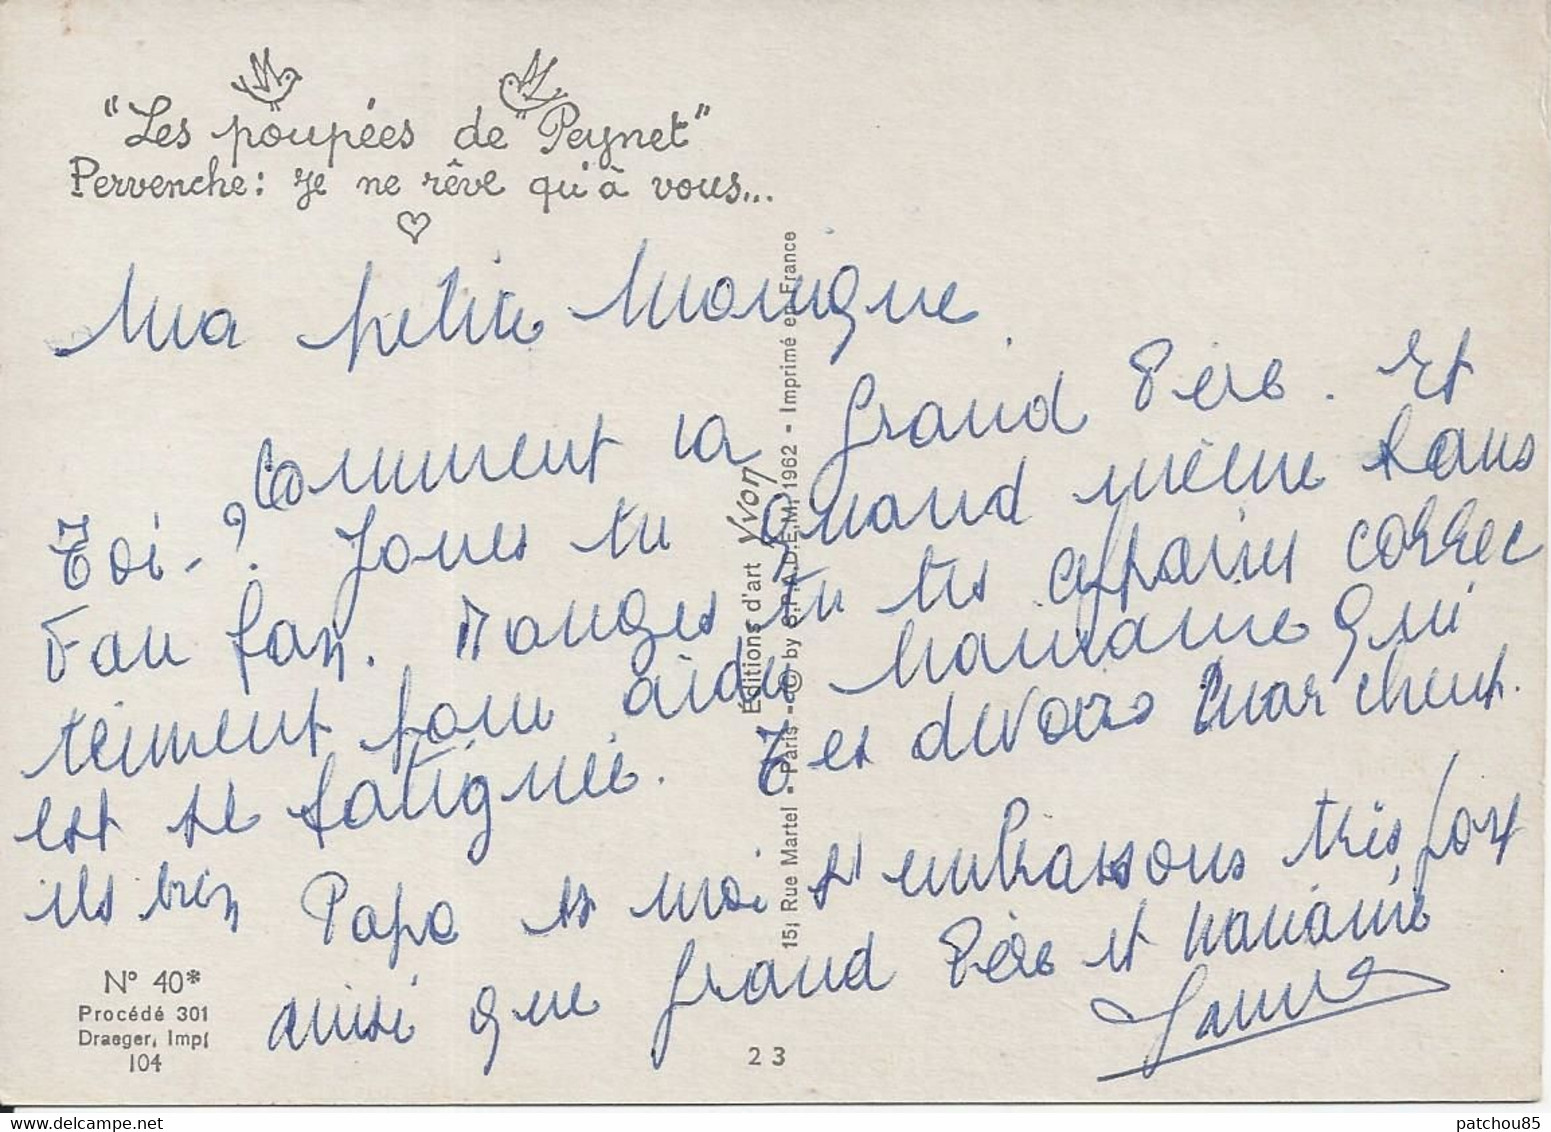 "Les poupées de Peynet"
Pervenche: Je ne rêve qu'à vous...
Ma petite Monique
Comment va Grand Père. Et
Toi - ? Joues tu quand même sans
Fan Fan. Manges tu tes cassis correc
tement pour aider maman qui
est se fatiguée. Tes devoirs marchent
ils bien Papa et moi t'embrassons très fort
ainsi que Grand Père et maman
Éditions d'art Yvon
15, Rue Martel - Paris - © by S.P.A.D.E.M. 1962 - Imprimé en France
N° 40*
Procédé 301
Draeger, Imp.
104
23
patchou85